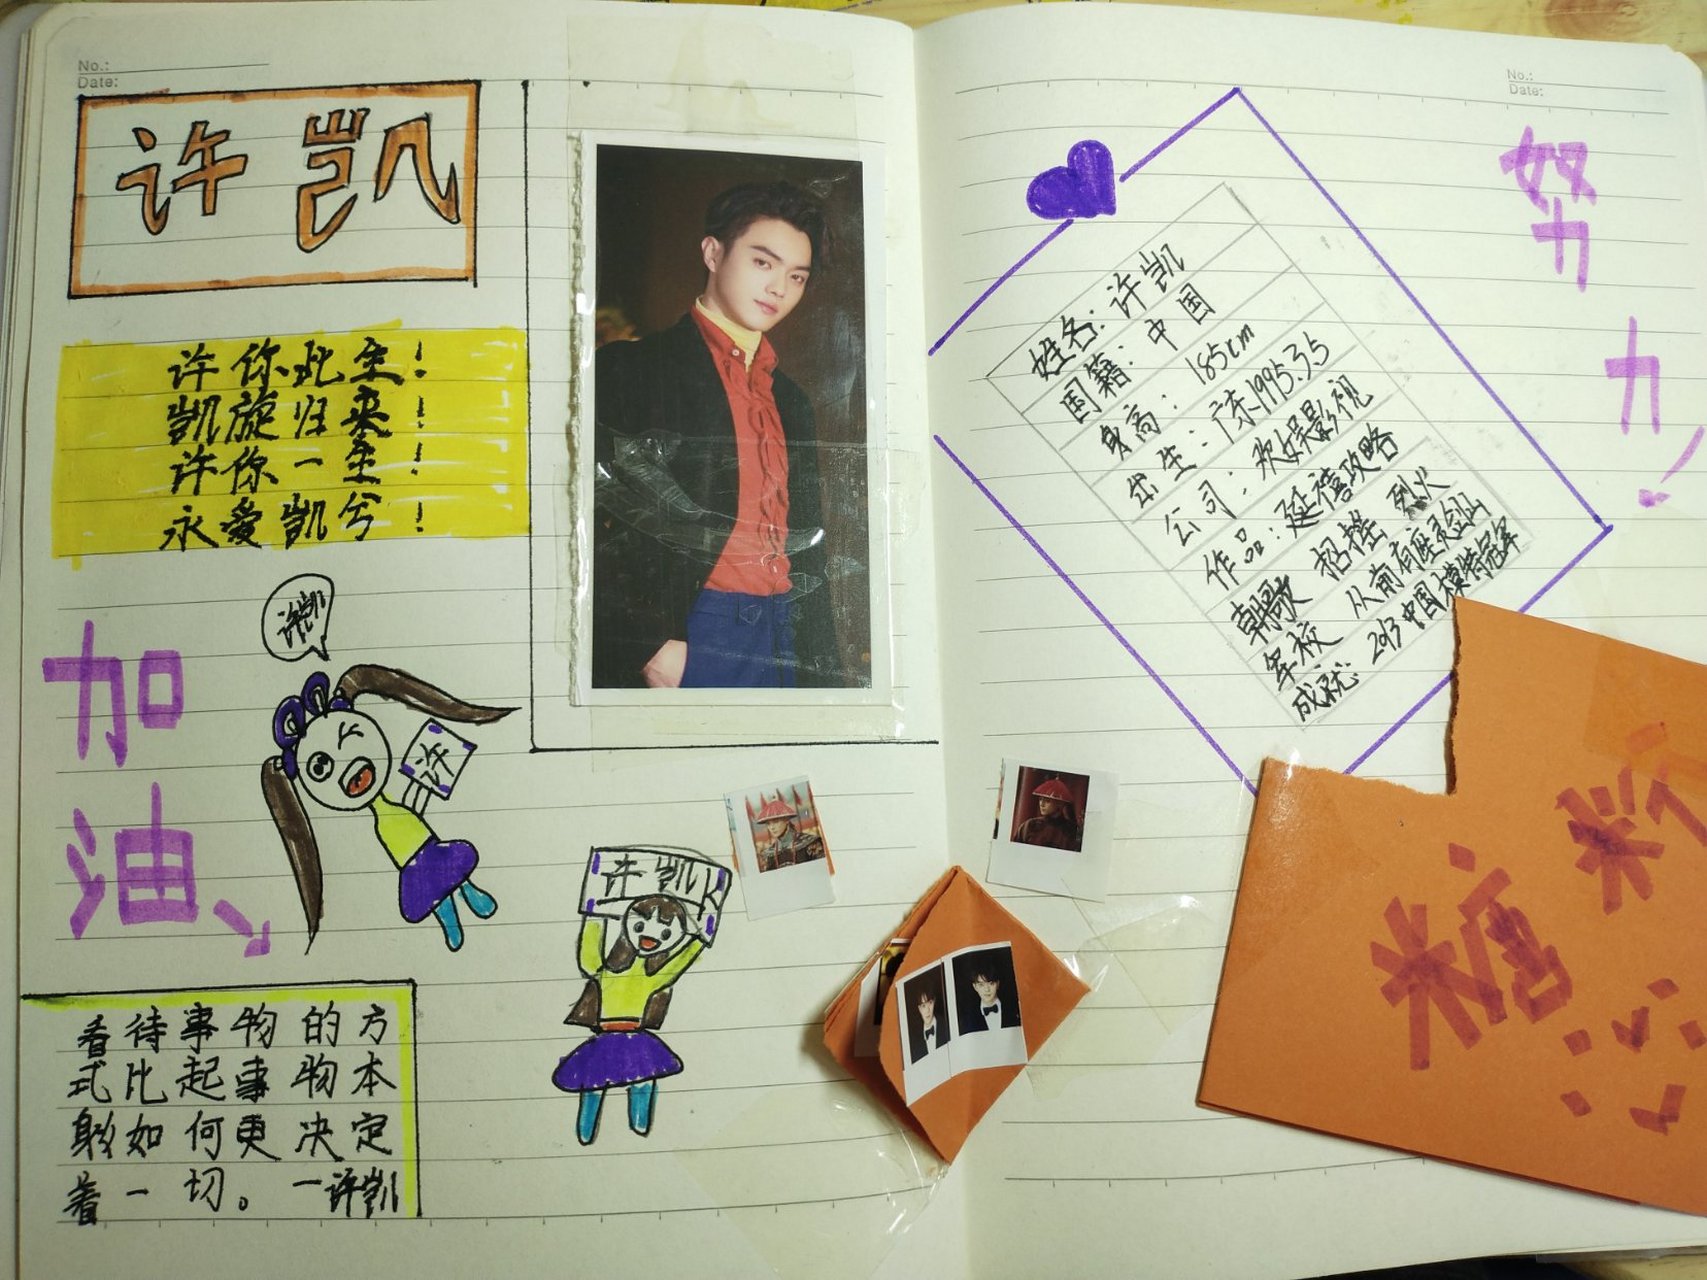 No.:
Date:
许凯
许你此生！
凯旋归来！
许你一生！
永爱凯兮！
许凯
加
油
许
许凯
看待事物的方
式比起事物本
身如何更决定
着一切。一许凯
No.:
Date:
努
力
！
姓名：许凯
国籍：中国
身高：185cm
出生：广东1995.3.5
公司：欢娱影视
作品：延禧攻略
朝歌 招摇 烈火
军校 从前有座灵剑山
成就：2013中国模特冠军
糖